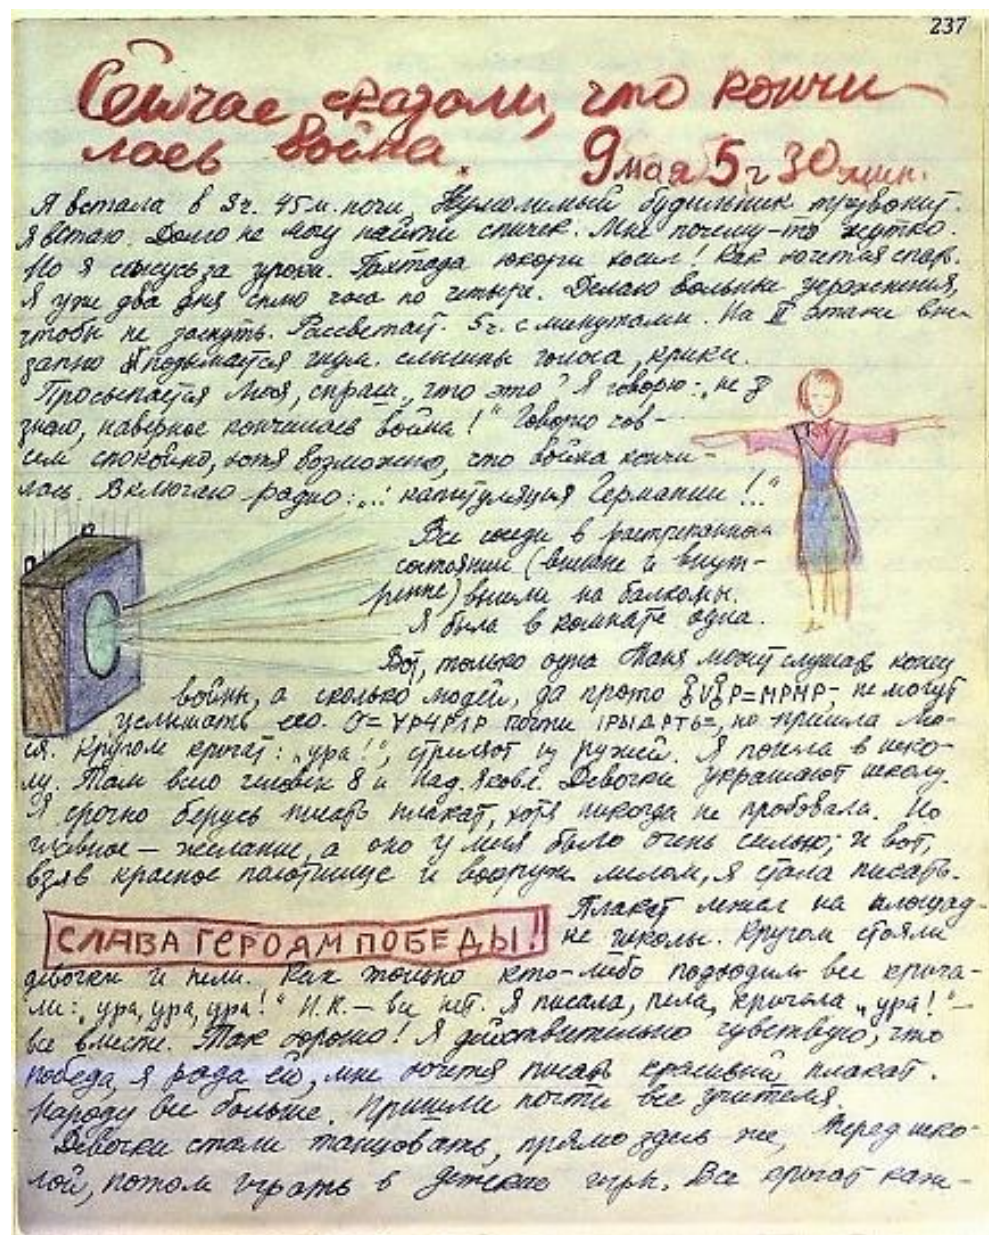 237
Сейчас сказали, что кончи-
лась война. 9 мая 5 ч 30 мин.
Я встала в 3ч. 45 м. ночи. Неумолимый будильник трезвонит.
Я встаю. Долго не могу найти спичек. Мне почему-то жутко.
Но я сажусь за уроки. Как хочется спать.
Я уже два дня сплю часа по четыре. Делаю вольные упражнения,
чтобы не заснуть. Рассветает. 5 ч. с минутами. На II этаже вне-
запно подымается шум. слышны голоса, крики.
Просыпается Моя, спраш. „что это? Я говорю: „не
знаю, наверное кончилась война!" Говорю сов-
сем спокойно, хотя возможно, что война кончи-
лась. Включаю радио: „..: капитуляция Германии!.."
Все соседи в растрепанном
состоянии (внешне и внут-
ренне) вышли на балконы.
Я была в комнате одна.
Вот, только одна Таня может слушать конец
войны, а сколько людей, да просто не могут
услышать его. почти но пришла Мо-
я. Кругом кричат: „ура!", стреляют из ружей. Я пошла в шко-
лу. Там всего человек 8 и Над. Яковл. Девочки украшают школу.
Я срочно берусь писать плакат, хотя никогда не пробовала. Но
главное – желание, а оно у меня было очень сильно; и вот,
взяв красное полотнище и вооруж. мелом, я стала писать.
Плакат лежал на площад-
СЛАВА ГЕРОЯМ ПОБЕДЫ!
ке школы. Кругом стояли
девочки и пели. Как только кто-либо подходил все крича-
ли: „ура, ура, ура!" И.К. – все нет. Я писала, пела, кричала „ура!" –
все вместе. Так хорошо! Я действительно чувствую, что
победа, я рада ей, мне хочется писать красивый плакат.
Народу все больше. Пришли почти все учителя.
Девочки стали танцовать, прямо здесь же, перед шко-
лой, потом играть в детские игры. Все кричат каж-